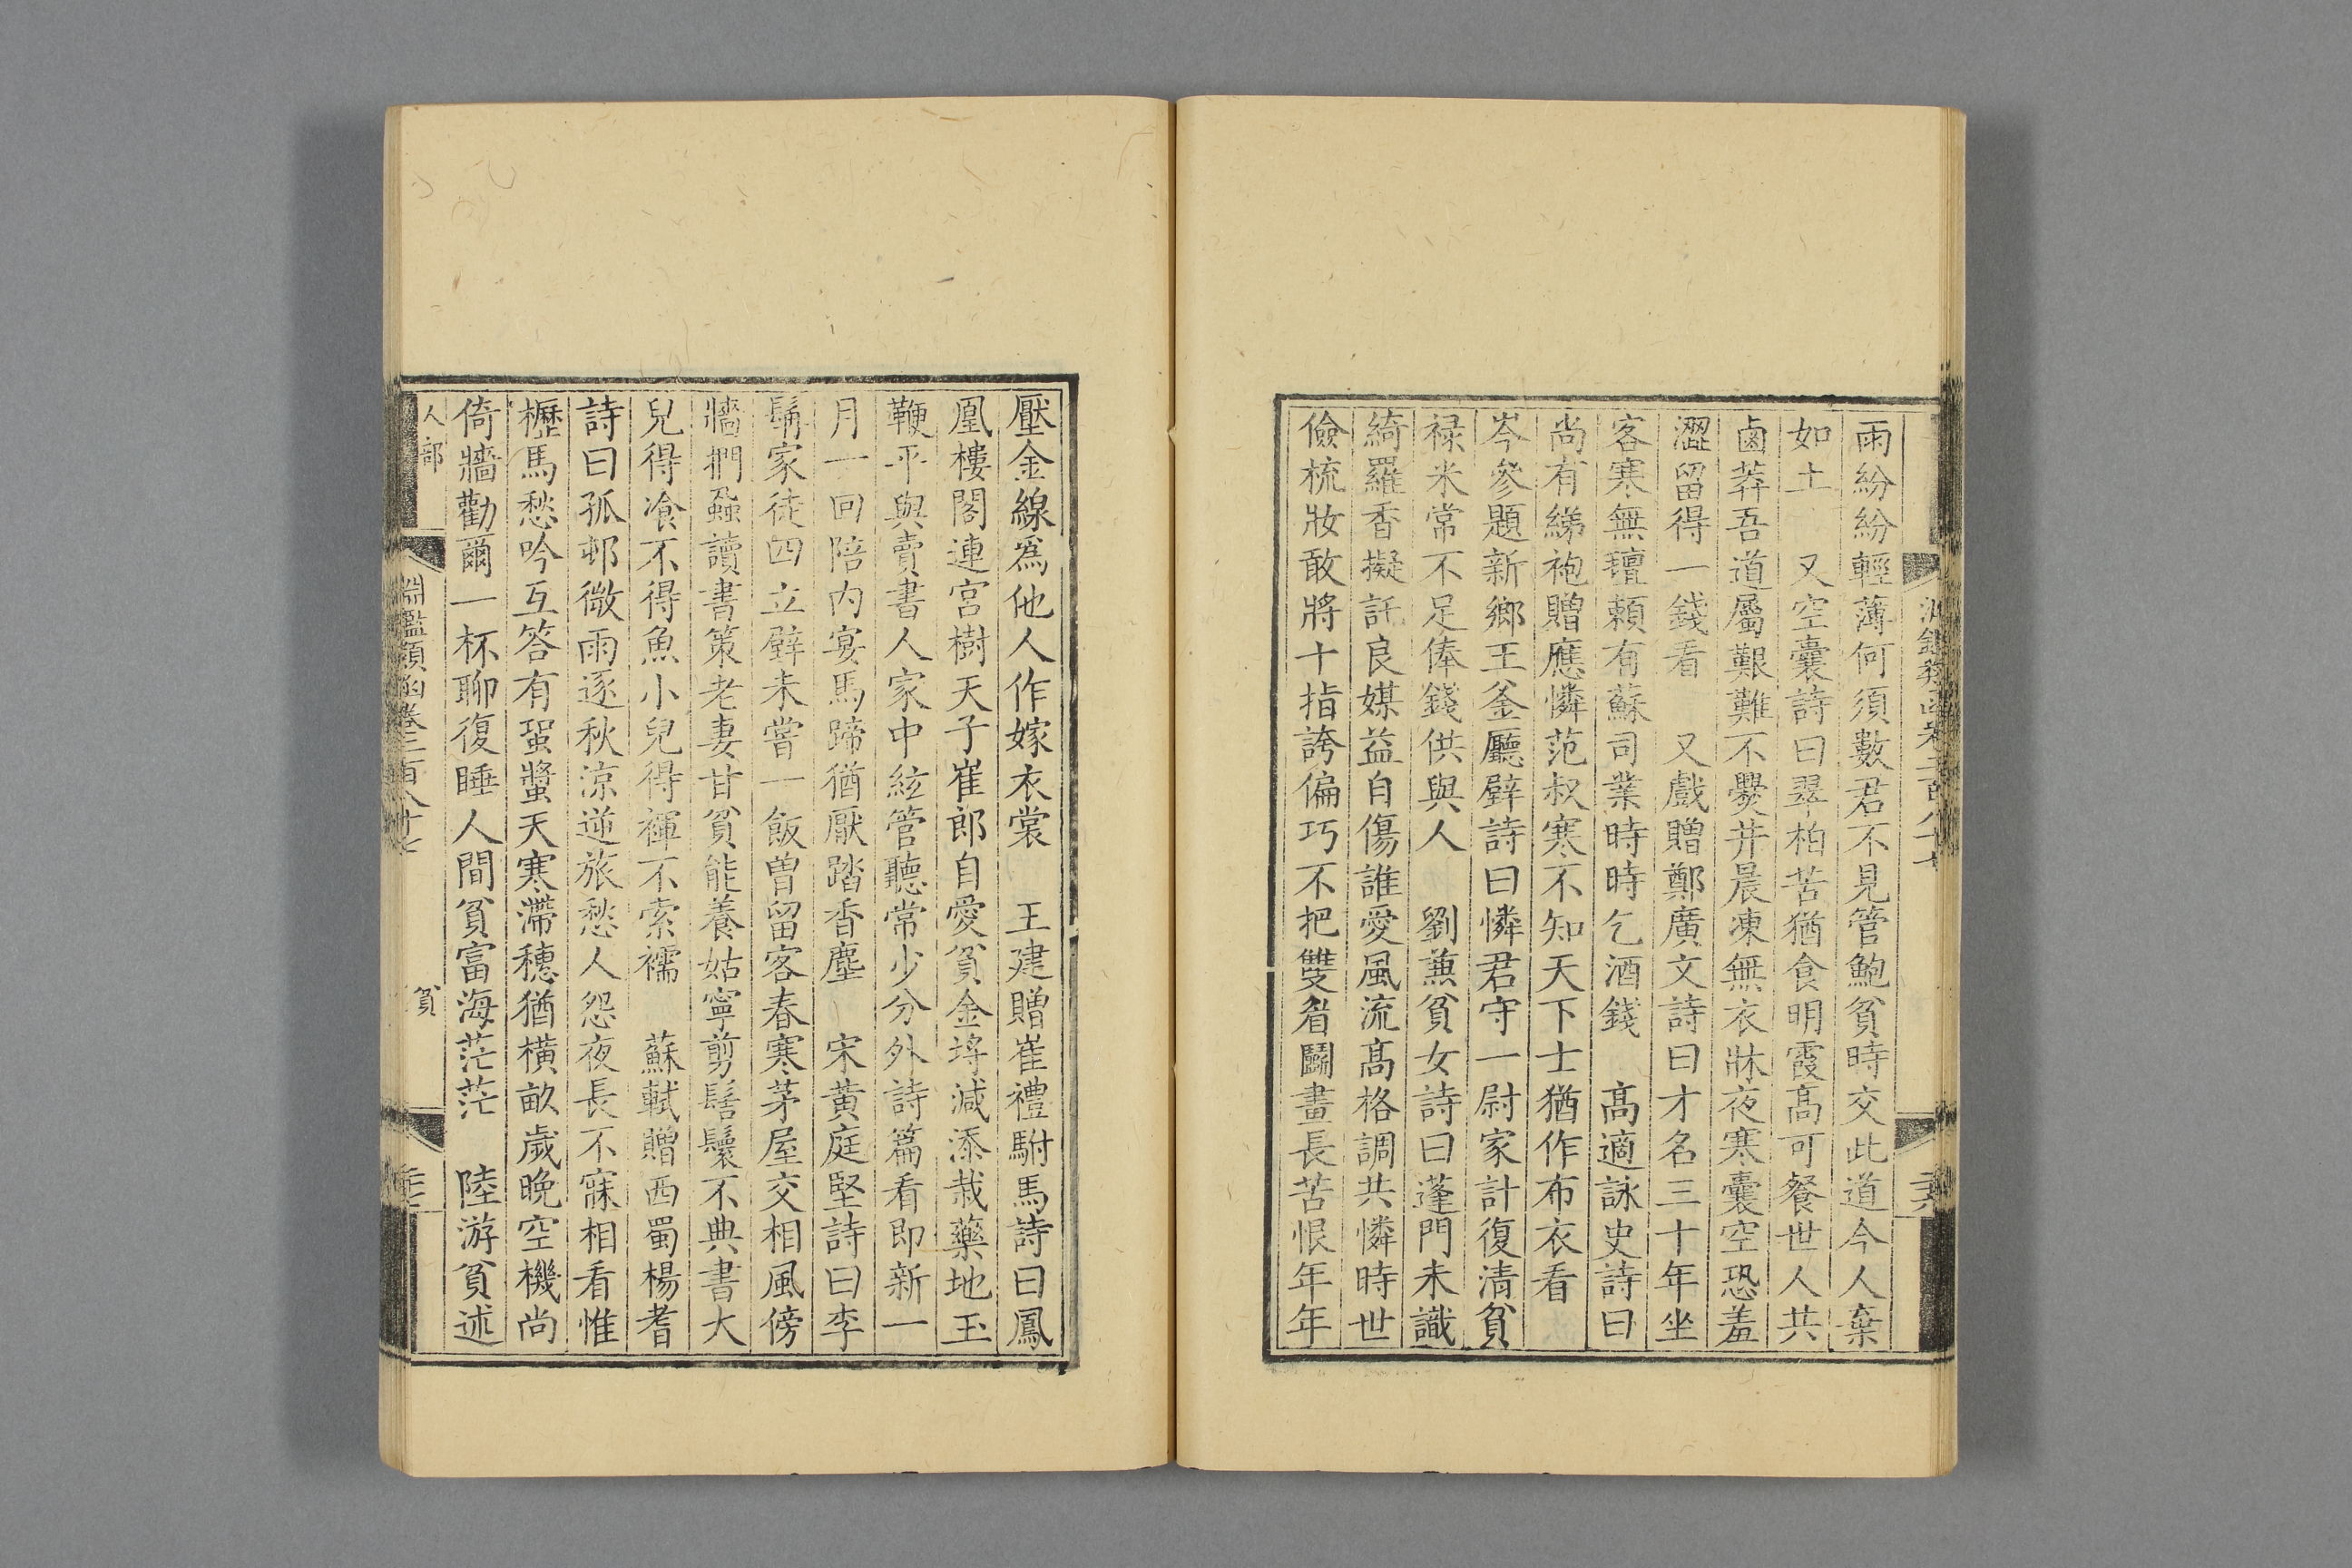 雨紛紛輕薄何須數君不見管鮑貧時交此道今人棄
如土　又空囊詩曰翠柏苦猶食明霞髙可餐世人共
鹵莽吾道屬艱難不爨井晨凍無衣牀夜寒囊空恐羞
澀留得一錢看　又戲贈鄭廣文詩曰才名三十年坐
客寒無氊賴有蘇司業時時乞酒錢　髙適詠史詩曰
尚有綈袍贈應憐范叔寒不知天下士猶作布衣看
岑參題新鄉王釜廳壁詩曰憐君守一尉家計復清貧
禄米常不足俸錢供與人　劉蕉貧女詩曰蓬門未識
綺羅香擬託良媒益自傷誰愛風流髙格調共憐時世
儉梳妝敢將十指誇偏巧不把雙眉鬭畫長苦恨年年
壓金線爲他人作嫁衣裳　王建贈崔禮駙馬詩曰鳳
凰樓閣連宮樹天子崔郎自愛貧金埓減添栽藥地玉
鞭平與賣書人家中絃管聽常少分外詩篇看即新一
月一回陪内宴馬蹄猶厭踏香塵　宋黄庭堅詩曰李
髯家徒四立壁未嘗一飯曽留客春寒茅屋交相風傍
牆捫蝨讀書策老妻甘貧能養姑寧剪髻鬟不典書大
兒得飡不得魚小兒得褌不索襦　蘇軾贈西蜀楊耆
詩曰孤邨微雨逐秋涼逆旅愁人怨夜長不寐相看惟
櫪馬愁吟互答有蛩螿天寒滯穗猶橫畝歲晚空機尚
倚牆勸爾一杯聊復睡人間貧富海茫茫　陸游貧述
人部　淵鑑類函卷二百八十七　貧